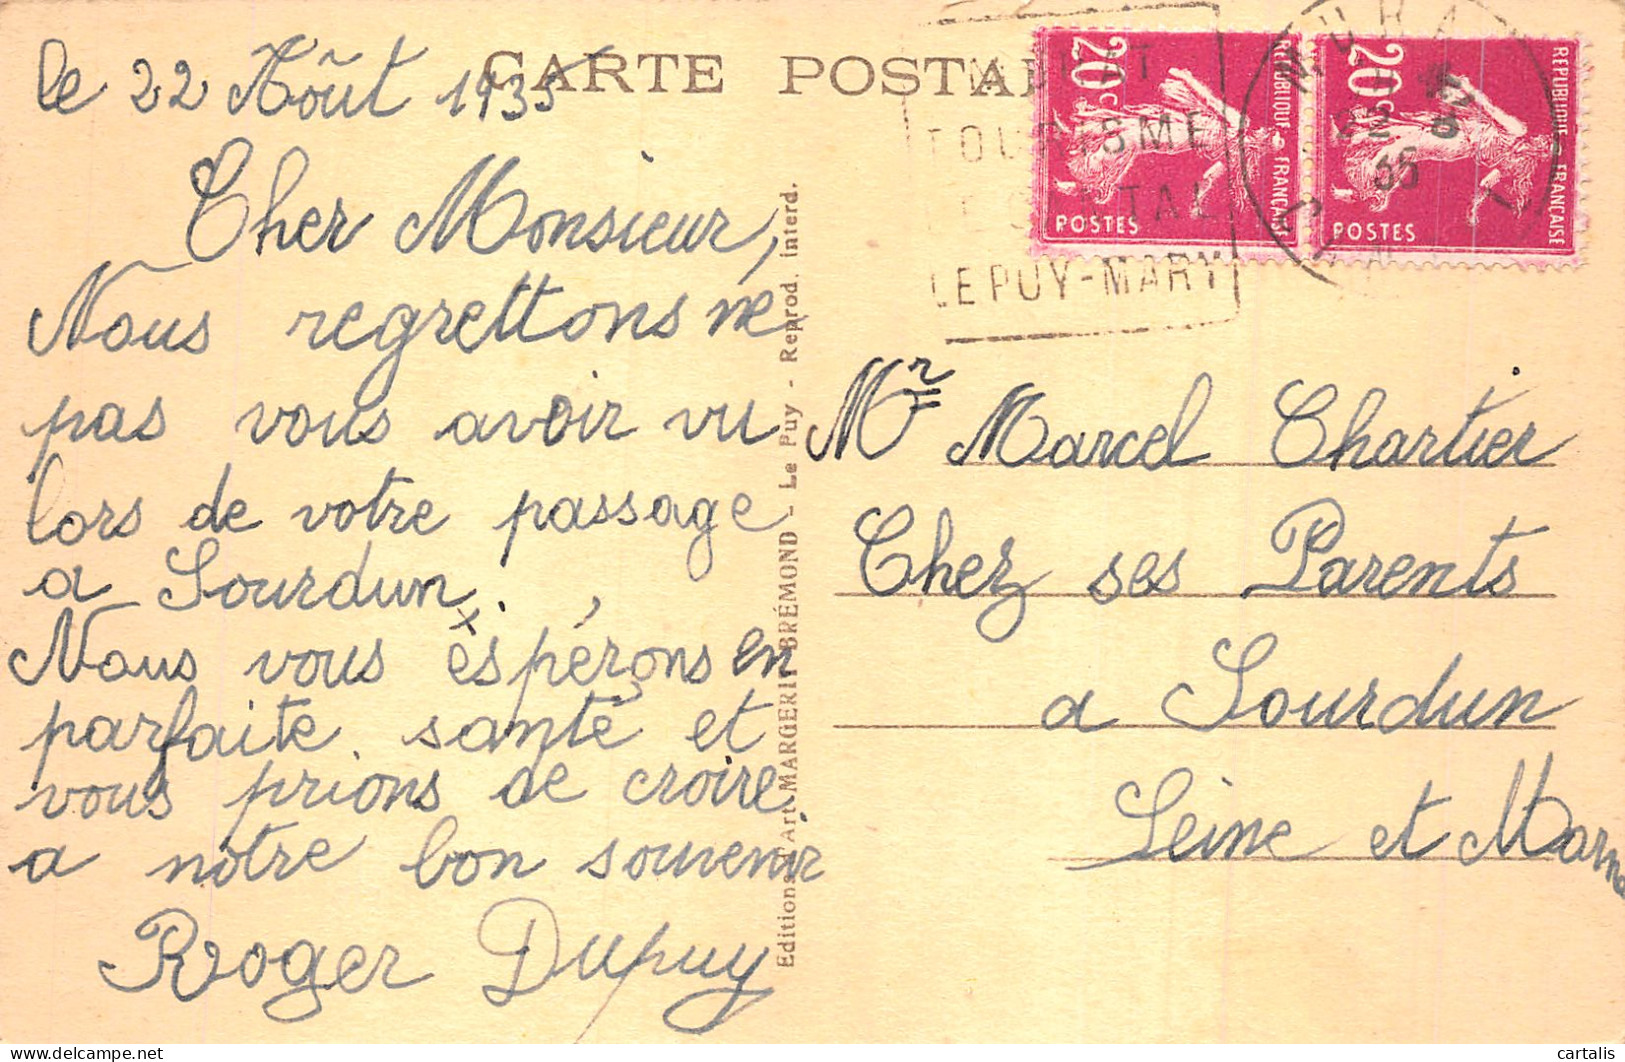 CARTE POSTA
le 22 Aôut 1935
Cher Monsieur,
Nous regrettons ne
pas vous avoir vu
lors de votre passage
a Sourdun.
Nous vous éspérons en
parfaite santé et
vous prions de croire
a nôtre bon souvenir
Roger Dupuy
Editions d'Art MARGERIT-BRÉMOND - Le Puy - Reprod. interd.
MURAT
TOURISME
LE CANTAL
LE PUY-MARY
20c
REPUBLIQUE FRANÇAISE
POSTES
20c
REPUBLIQUE FRANÇAISE
POSTES
MURAT
22 8
35
Mr Marcel Chartier
Chez ses Parents
a Sourdun
Seine et Marne
cartalis